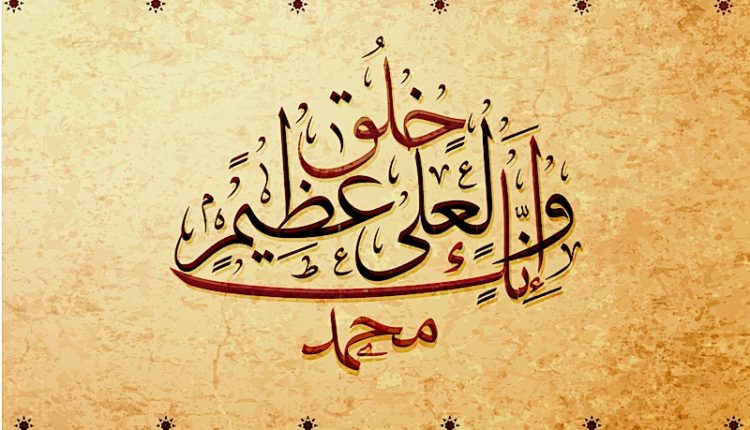 وَإِنَّكَ لَعَلَى خُلُقٍ عَظِيمٍ
محمد